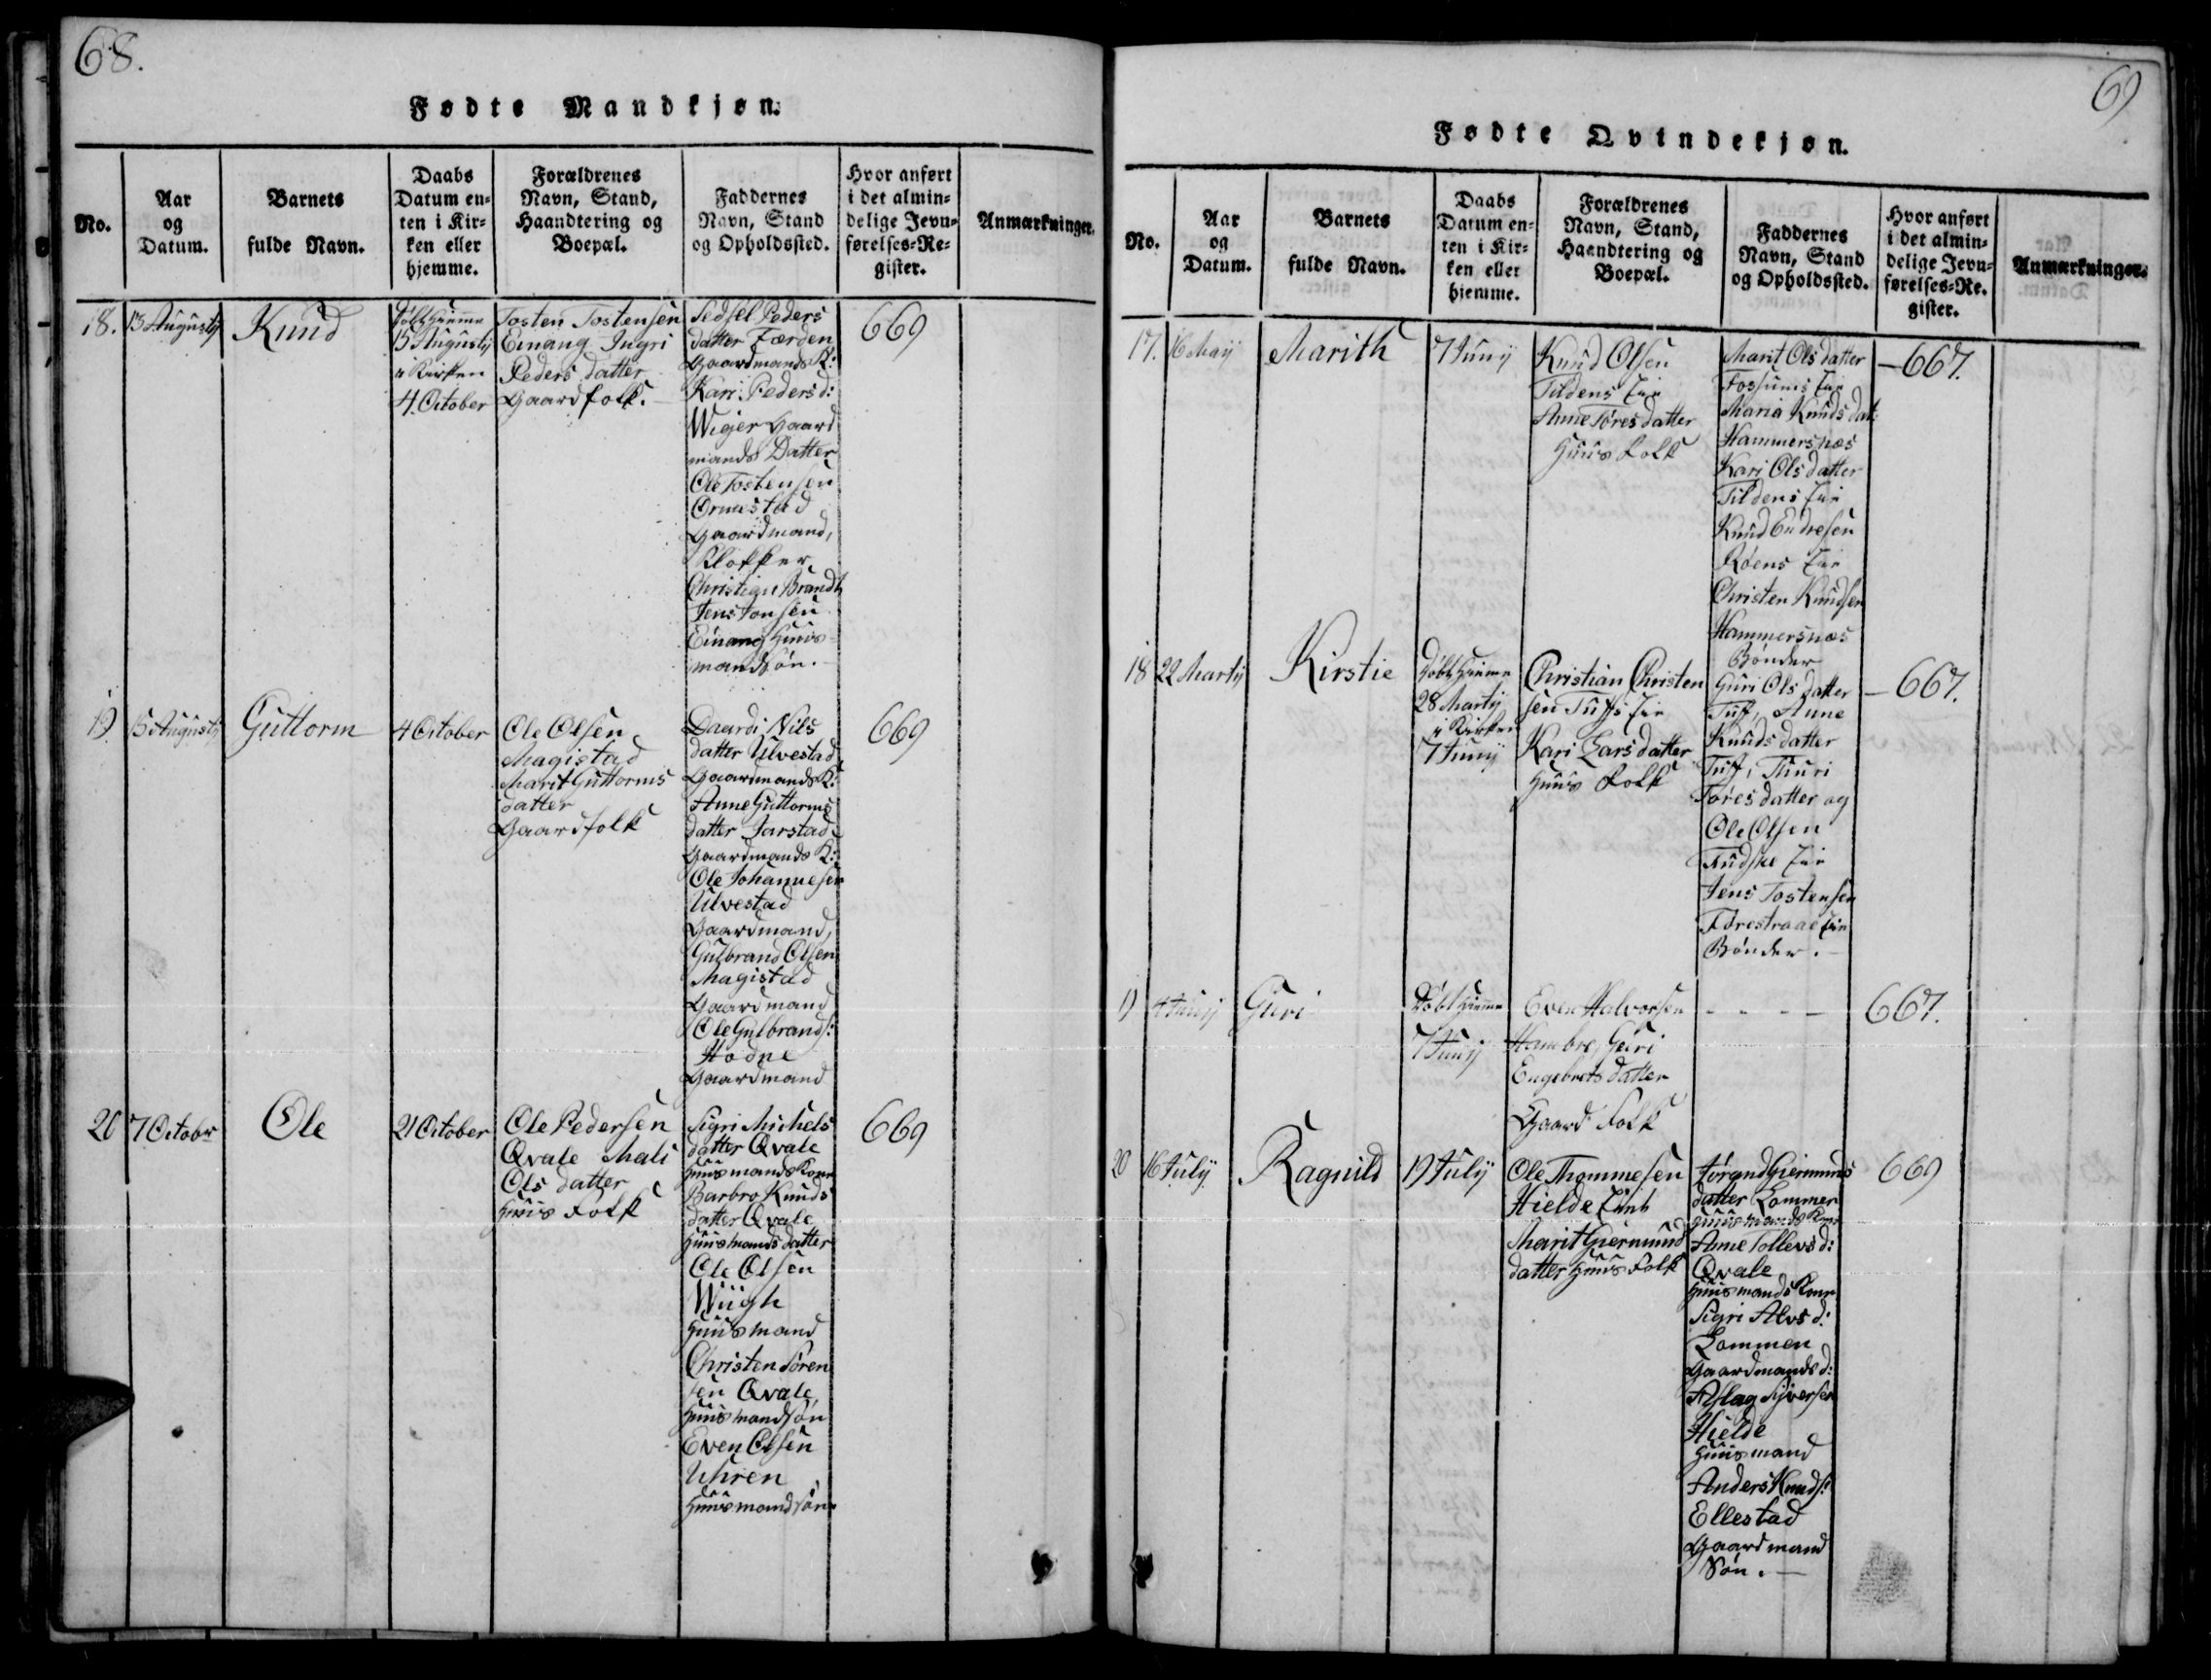 68.
Fødte Mandkjøn.
No.
Aar
og
Datum.
Barnets
fulde Navn.
Daabs
Datum en-
ten i Kir-
ken eller
hjemme.
Forældrenes
Navn, Stand,
Haandtering og
Boepæl.
Faddernes
Navn, Stand
og Opholdssted.
Hvor anført
i det almin-
delige Jevn-
førelses-Re-
gister.
Anmærkninger.
18.
13 Augusty
Knud
Døbt hjemme
15 Augusty
i Kirken
4. October
Tosten Tostensen
Einang Ingri
Peders datter
Gaardfolk.
Sedsel Peders
datter Færden
Gaardmands K:
Kari Peders d:
Wiger Gaard
mands Datter
Ole Tostensen
Ormestad
Gaardmand,
Klokker
Christian Brandt
Jens Jonsen
Einang Huus
mandsøn.
669
19
15 Augusty
Guttorm
4 October
Ole Olsen
Magistad
Marit Guttorms
datter
Gaardfolk
Daardi Nils
datter Ulvestad
Gaardmands K:
Anne Guttorms
datter Jarstad
Gaardmands K:
Ole Johannesen
Ulvestad
Gaardmand,
Gulbrand Olsen
Magistad
Gaardmand
Ole Gulbrands:
Hodne
Gaardmand
669
20
7 Octobr
Ole
21 October
Ole Pedersen
Qvale Mali
Ols datter
Huus Folk
Sigri Michels
datter Qvale
Huusmands Kone
Barbro Knuds
datter Qvale
Huusmands datter
Ole Olsen
Wiigh
Huusmand
Christen Søren
sen Qvale
Huusmandsøn
Even Olsen
Uhren
Huusmandsøn
669
69
Fødte Qvindekjøn.
No.
Aar
og
Datum.
Barnets
fulde Navn.
Daabs
Datum en-
ten i Kir-
ken eller
hjemme.
Forældrenes
Navn, Stand,
Haandtering og
Boepæl.
Faddernes
Navn, Stand
og Opholdssted.
Hvor anført
i det almin-
delige Jevn-
førelses-Re-
gister.
Anmærkninger.
17.
16 Maij
Marith
7 Junij
Knud Olsen
Tildens Eie
Anne Tores datter
Huus Folk
Marit Ols datter
Fossums Eie
Maria Knuds dat:
Hammersnæs
Kari Ols datter
Tildens Eie
Knud Endresen
Røens Eie
Christen Knudsen
Hammersnæs
Bønder
667.
18
22 Martij
Kirstie
Døbt hjemme
28 Martij
i Kirken
7 Junij
Christian Christen
sen Tuffs Eie
Kari Lars datter
Huus Folk
Guri Ols datter
Tuff, Anne
Knuds datter
Tuff, Thuri
Tores datter og
Ole Olsen
Eie
Jens Tostensen
Eie
Bønder.
667.
19
4 Junij
Guri
Døbt hjemme
7 Junij
Even Halvorsen
Hambre, Guri
Engebrets datter
Gaard Folk
- - - -
667.
20
16 Julij
Ragnild
19 Julij
Ole Thommesen
Hielde
Marit Giermund
datter Huus Folk
Jørand Giermunds
datter Lommen
Huusmands Kone
Anne Tollevs d:
Qvale
Huusmands Kone
Sigri Alvs d:
Lommen
Gaardmands d:
Aslag Siversen
Hielde
Huusmand
Anders Knuds:
Ellestad
Gaardmand
Søn.
669